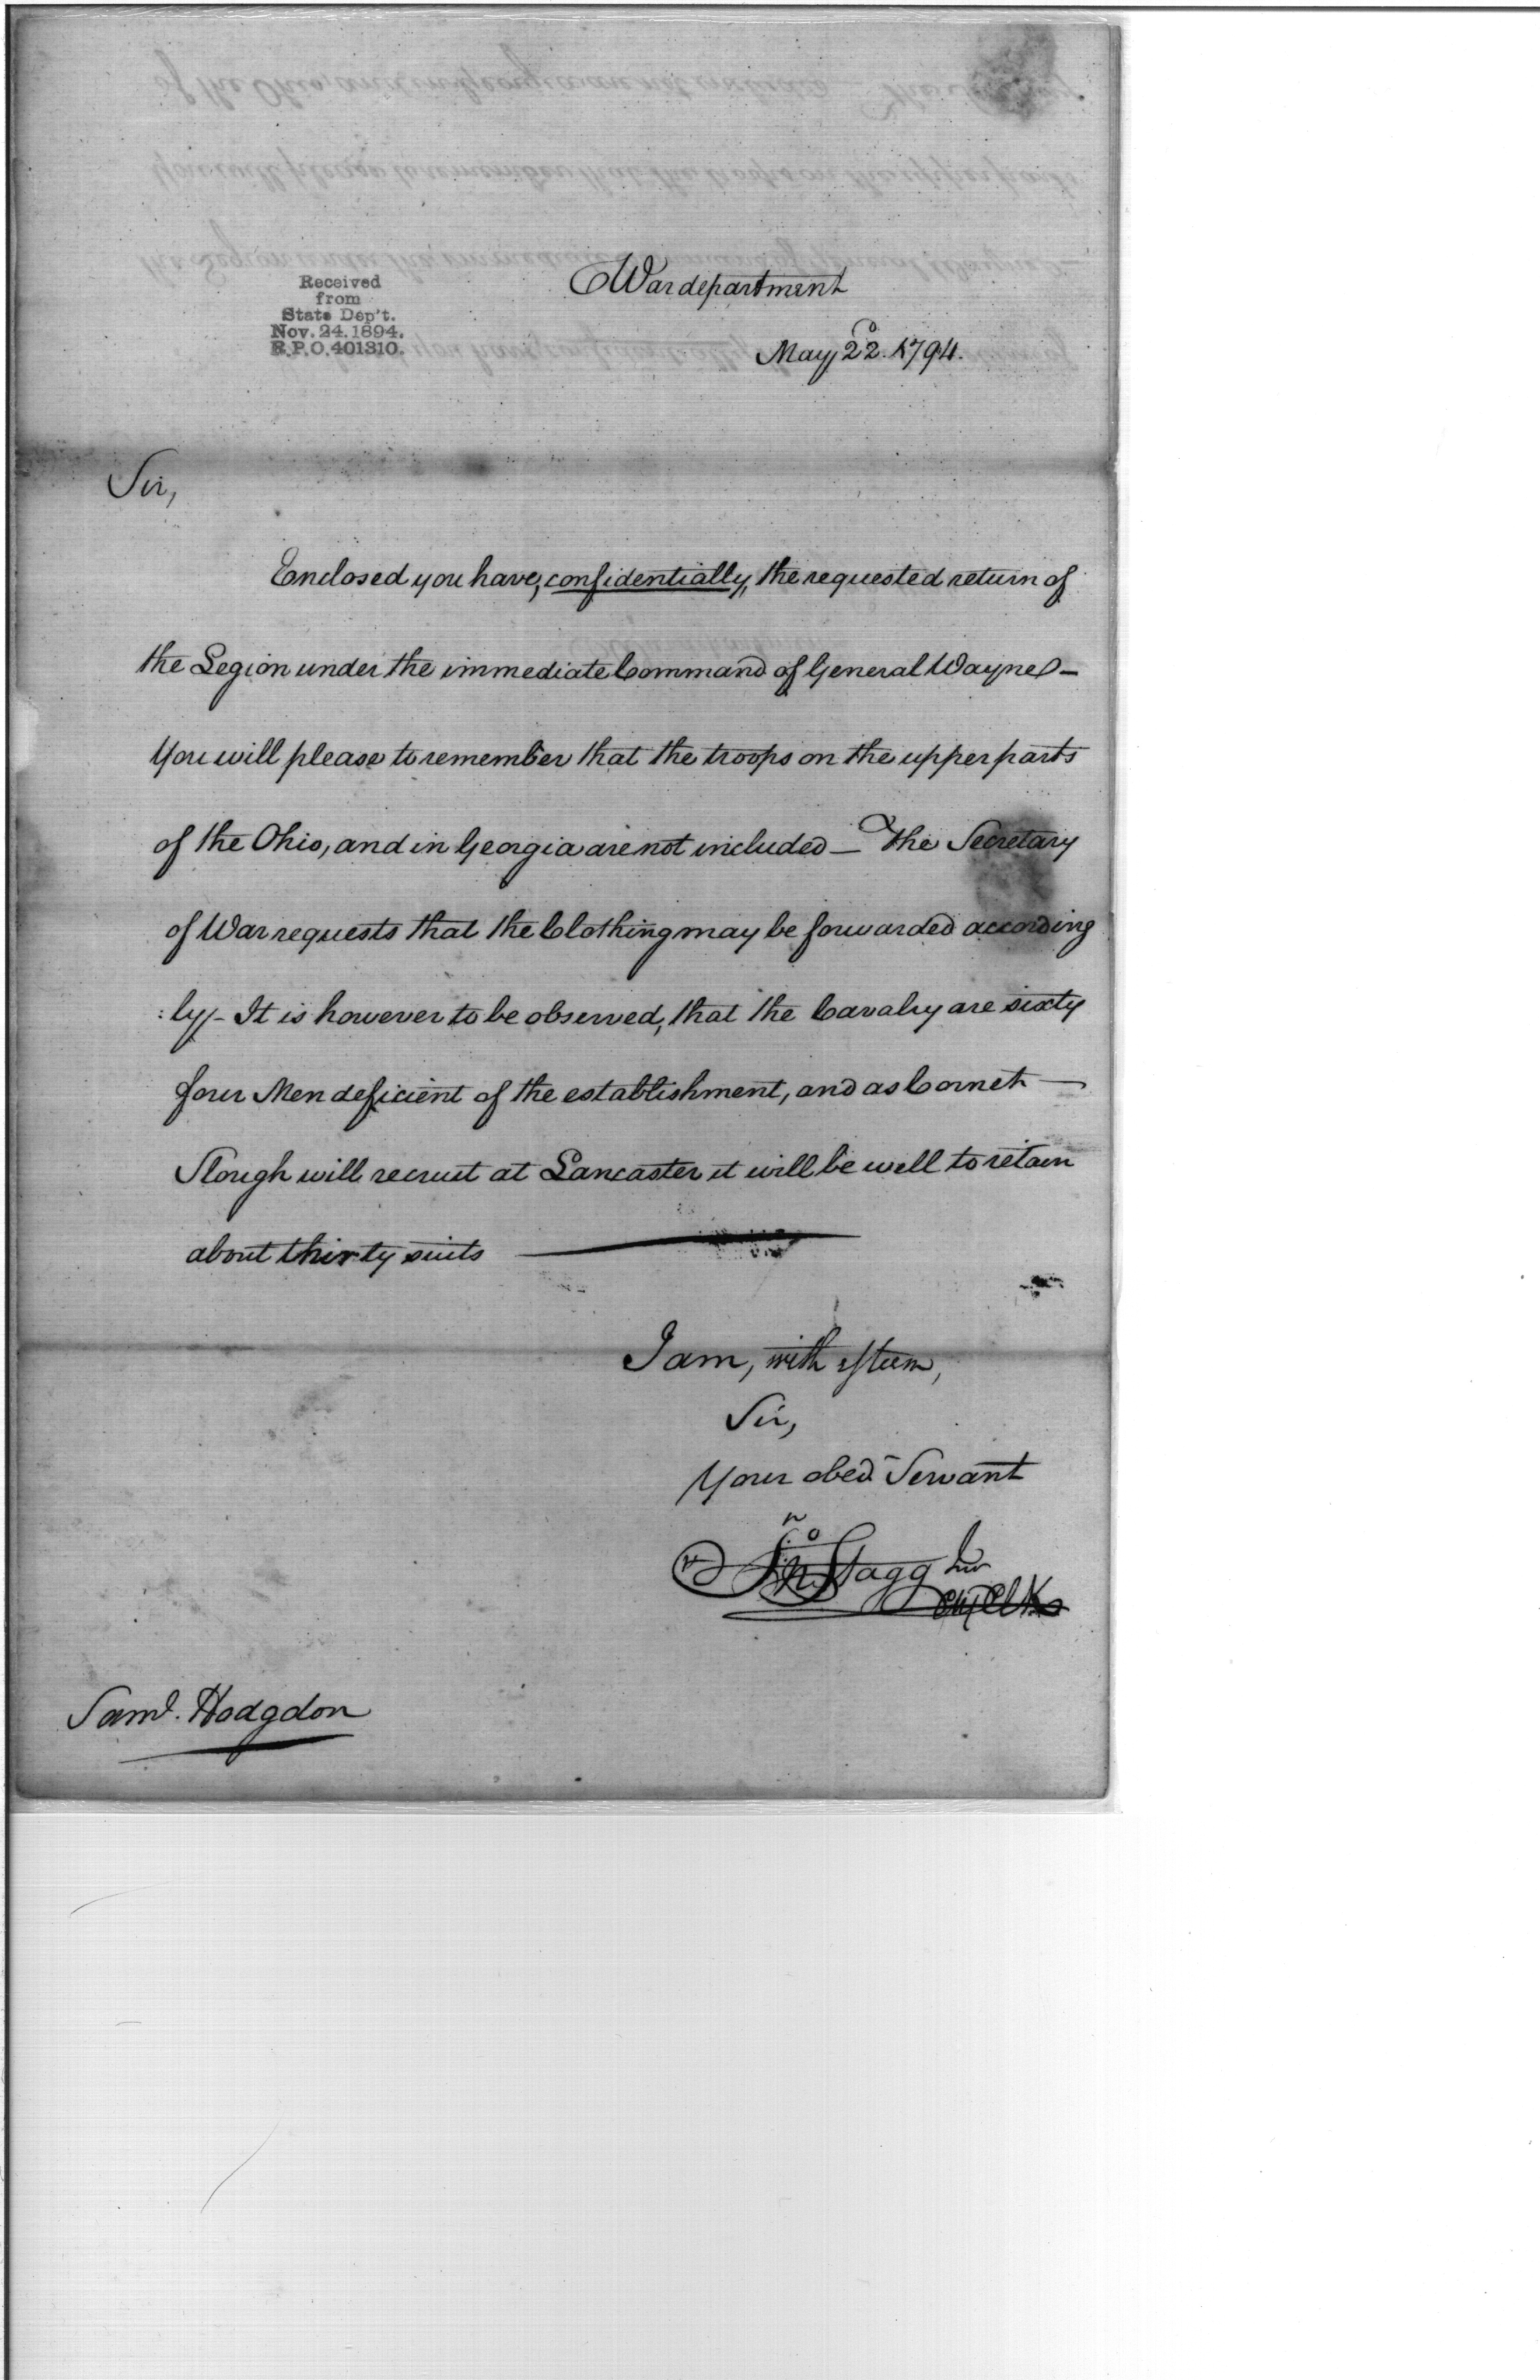 Received
from
State Dep't.
Nov. 24. 1894.
R.P.O. 401310.
War department
May 22d. 1794.
Sir,
Enclosed you have, confidentially, the requested return of
the Legion under the immediate Command of General Wayne –
You will please to remember that the troops on the upper parts
of the Ohio, and in Georgia are not included – The Secretary
of War requests that the Clothing may be forwarded according
:ly – It is however to be observed, that the Cavalry are sixty
four Men deficient of the establishment, and as Cornet —
Slough will recruit at Lancaster it will be well to retain
about thirty suits
I am, with esteem,
Sir,
Your obed. Servant
Jno Stagg Jur
Chf Clk
Saml. Hodgdon